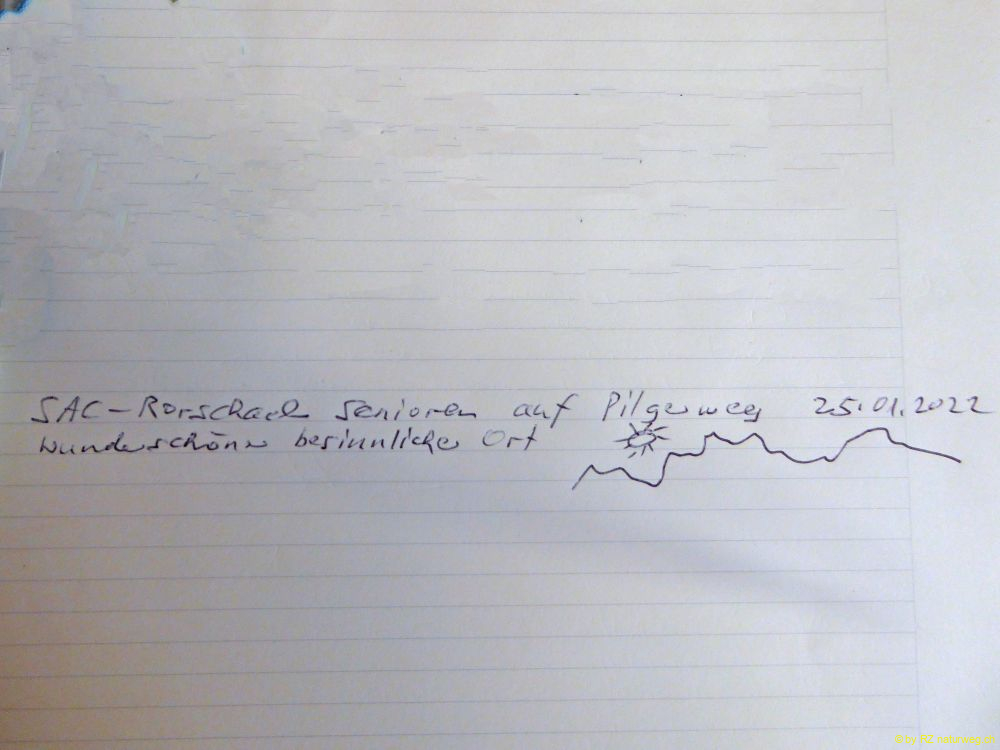 SAC-Rorschach Senioren auf Pilgerweg 25.01.2022
wunderschöner besinnlicher Ort